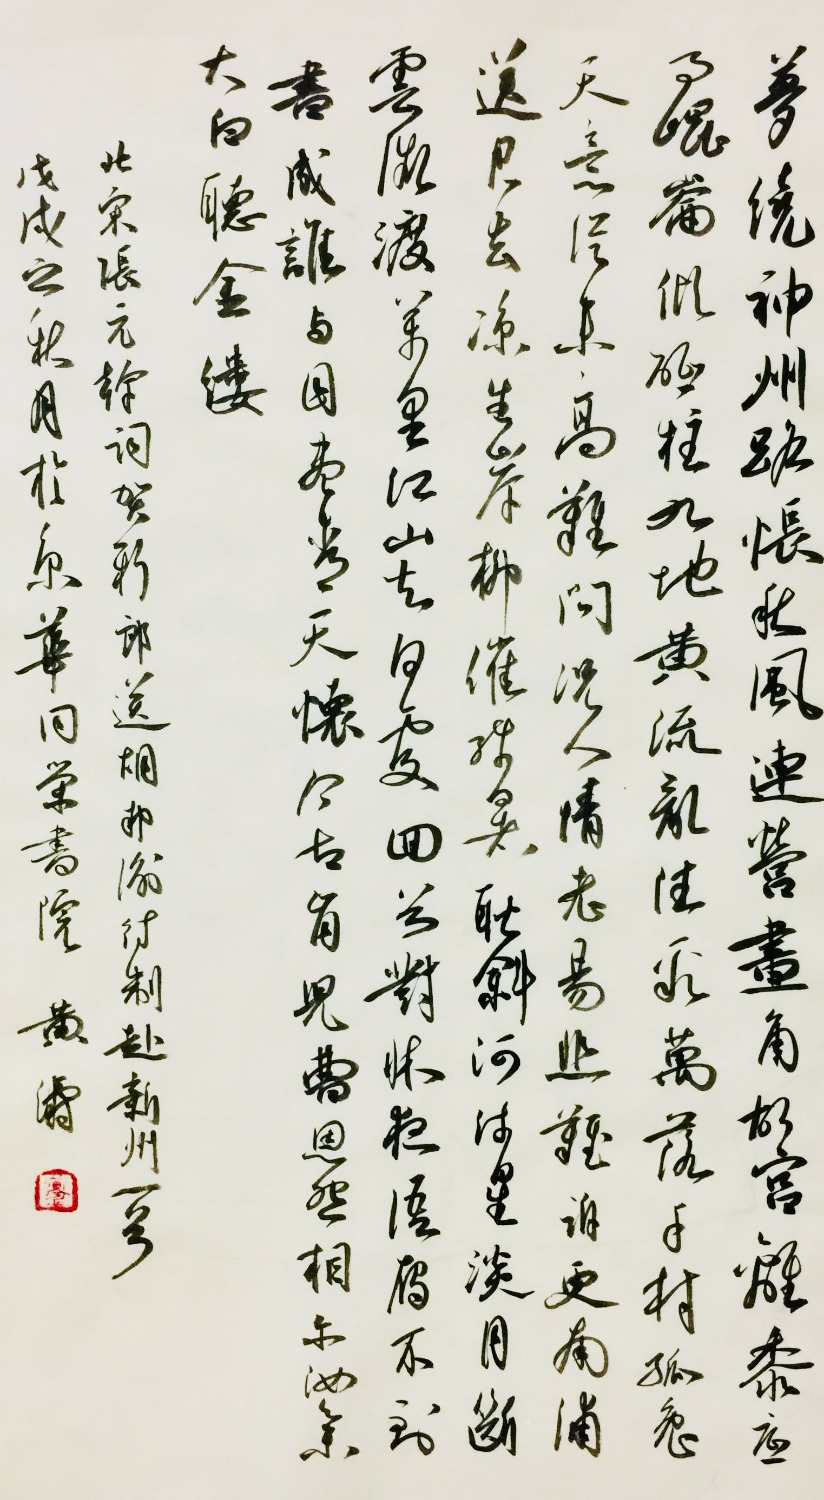 夢繞神州路悵秋風連營畫角故宮離黍底
事崐崙傾砥柱九地黄流亂注聚萬落千村狐兔
天意從來高難問况人情老易悲難訴更南浦
送君去凉生岸柳催殘暑耿斜河疏星淡月斷
雲微渡萬里江山知何處回首對床夜語雁不到
書成誰与目盡青天懷今古肯兒曹恩怨相爾汝舉
大白聽金縷
北宋張元幹詞賀新郎送胡邦衡待制赴新州一首
戊戌之秋月於京華同榮書院 黄濤